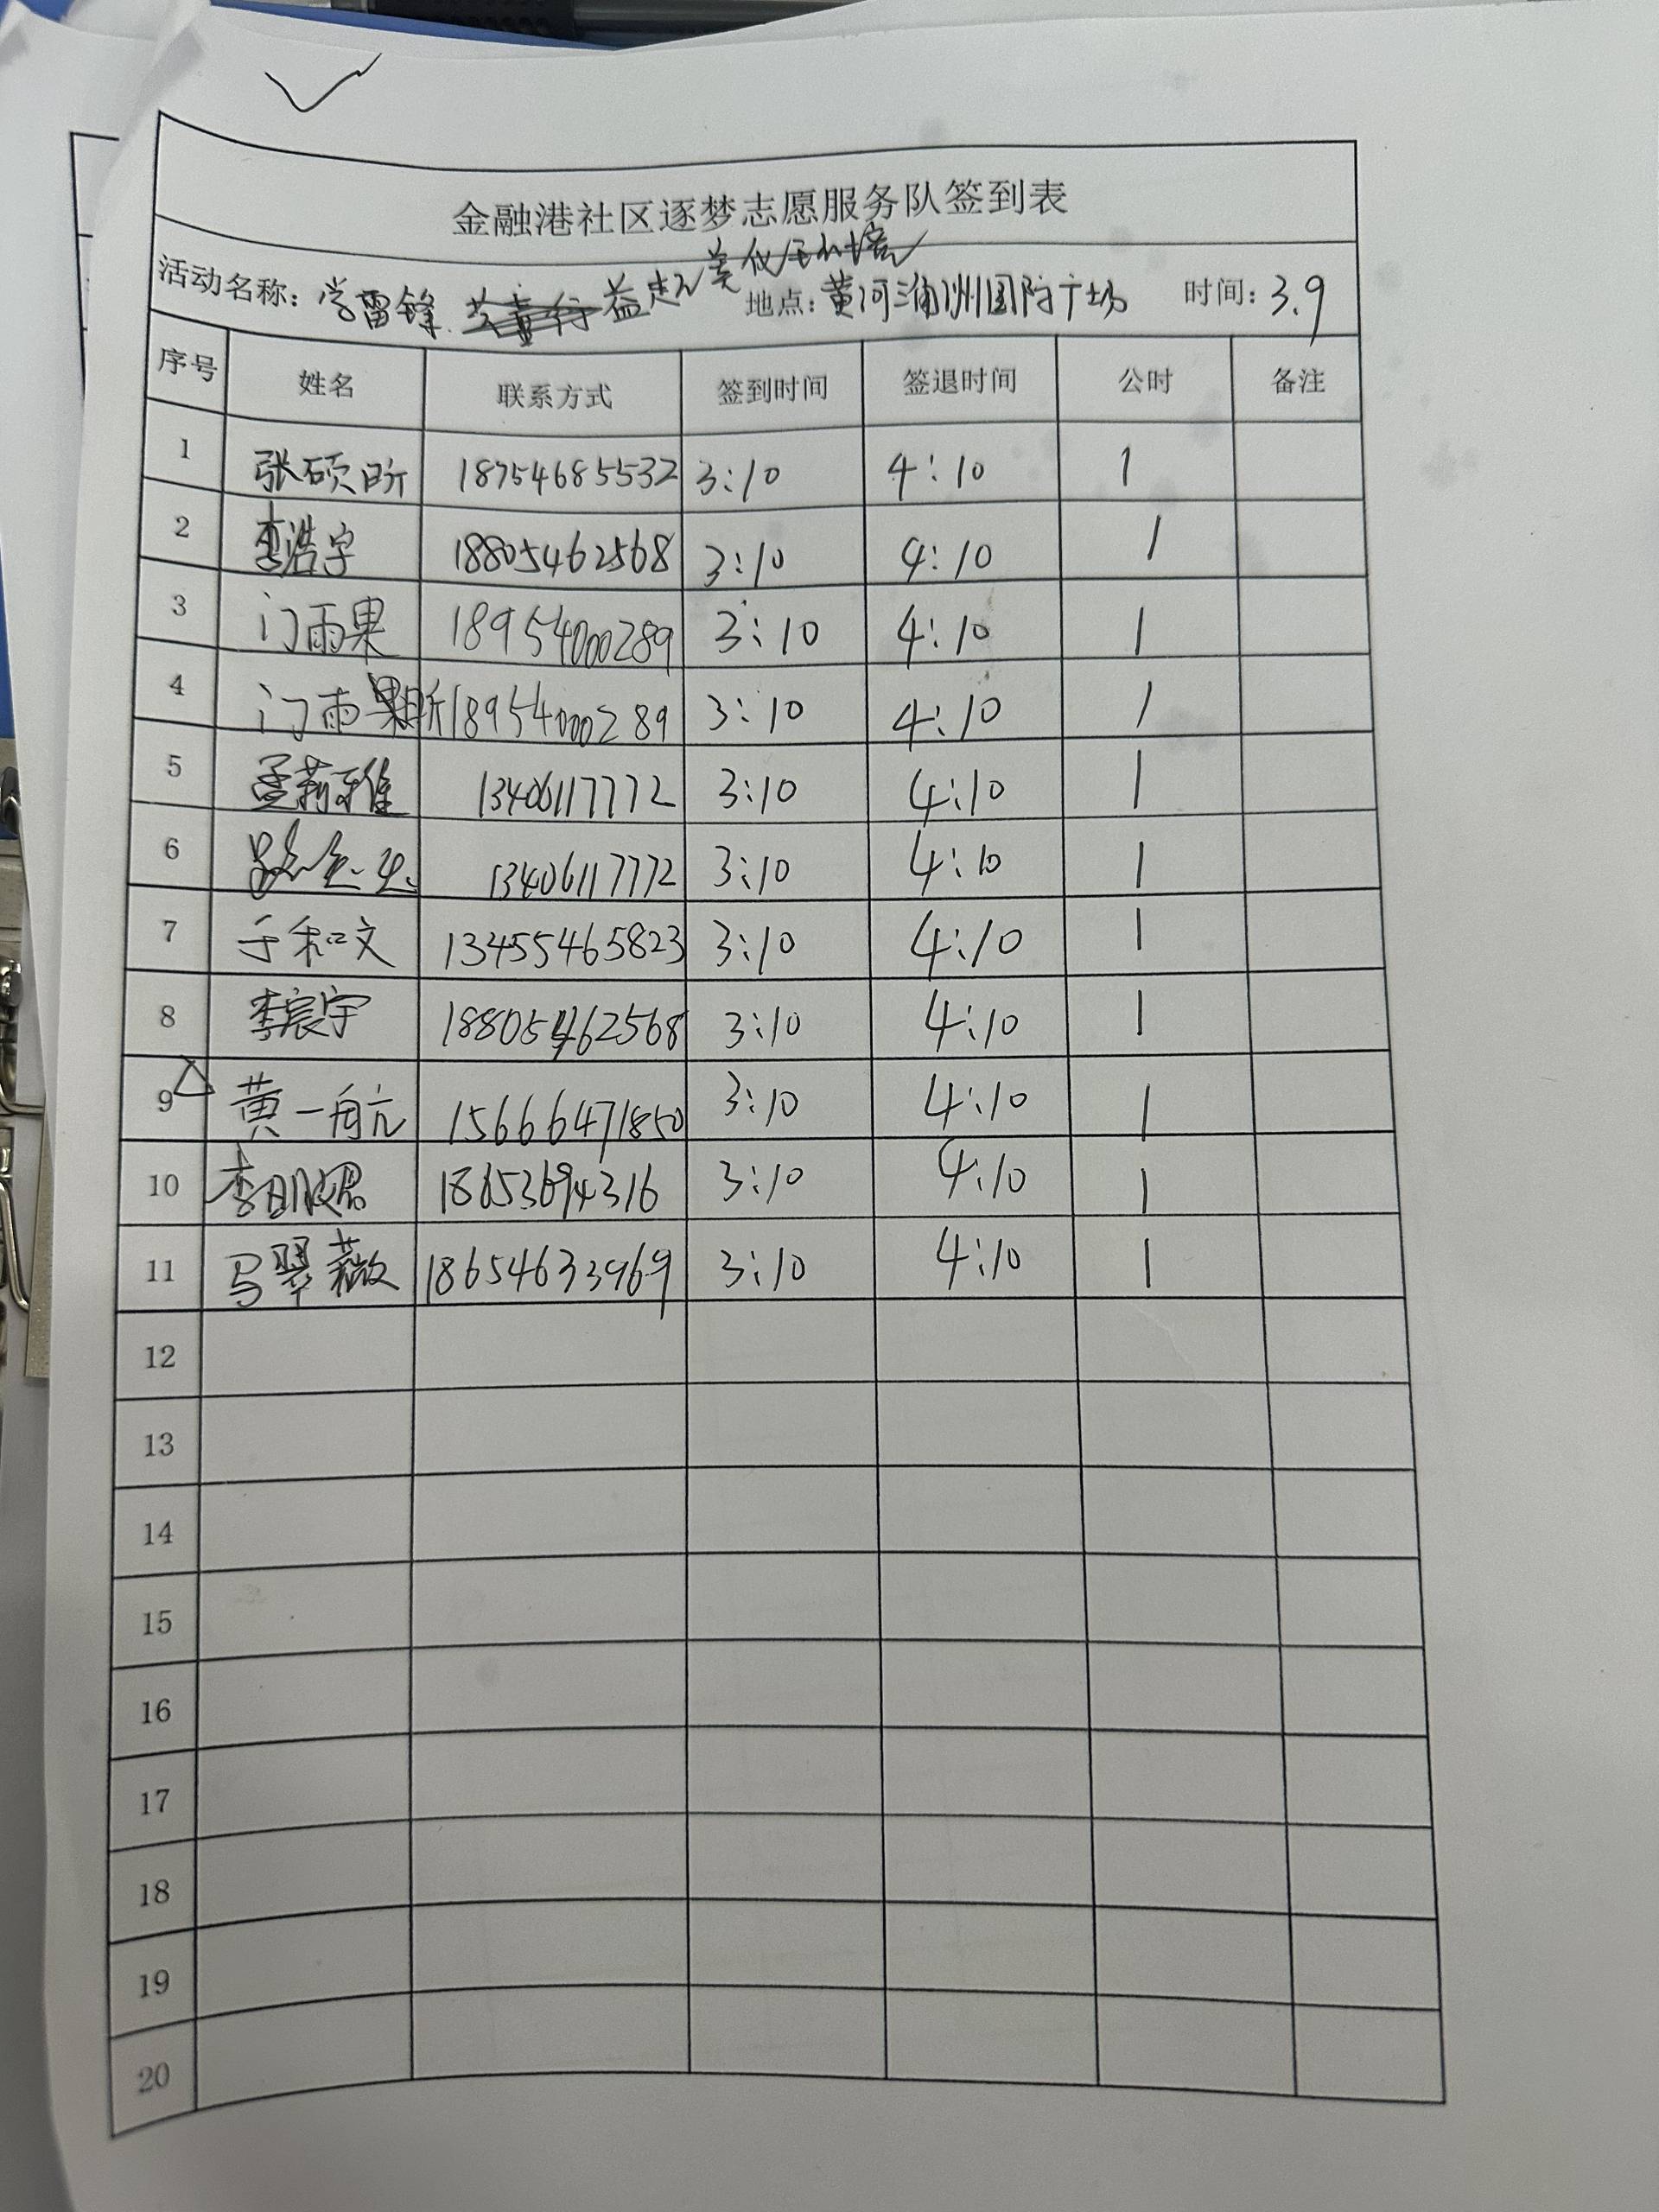 金融港社区逐梦志愿服务队签到表
活动名称：学雷锋 益起 美 地点：黄河三角洲国际广场 时间：3.9
序号 姓名 联系方式 签到时间 签退时间 公时 备注
1 张硕昕 18754685532 3:10 4:10 1
2 李浩宇 18805462568 3:10 4:10 1
3 门雨果 18954000289 3:10 4:10 1
4 门雨昕 18954000289 3:10 4:10 1
5 孟莉雅 13406117772 3:10 4:10 1
6 13406117772 3:10 4:10 1
7 于和文 13455465823 3:10 4:10 1
8 李宸宇 18805462568 3:10 4:10 1
9 黄一航 15666471850 3:10 4:10 1
10 李 18653694316 3:10 4:10 1
11 马翠薇 18654633969 3:10 4:10 1
12
13
14
15
16
17
18
19
20